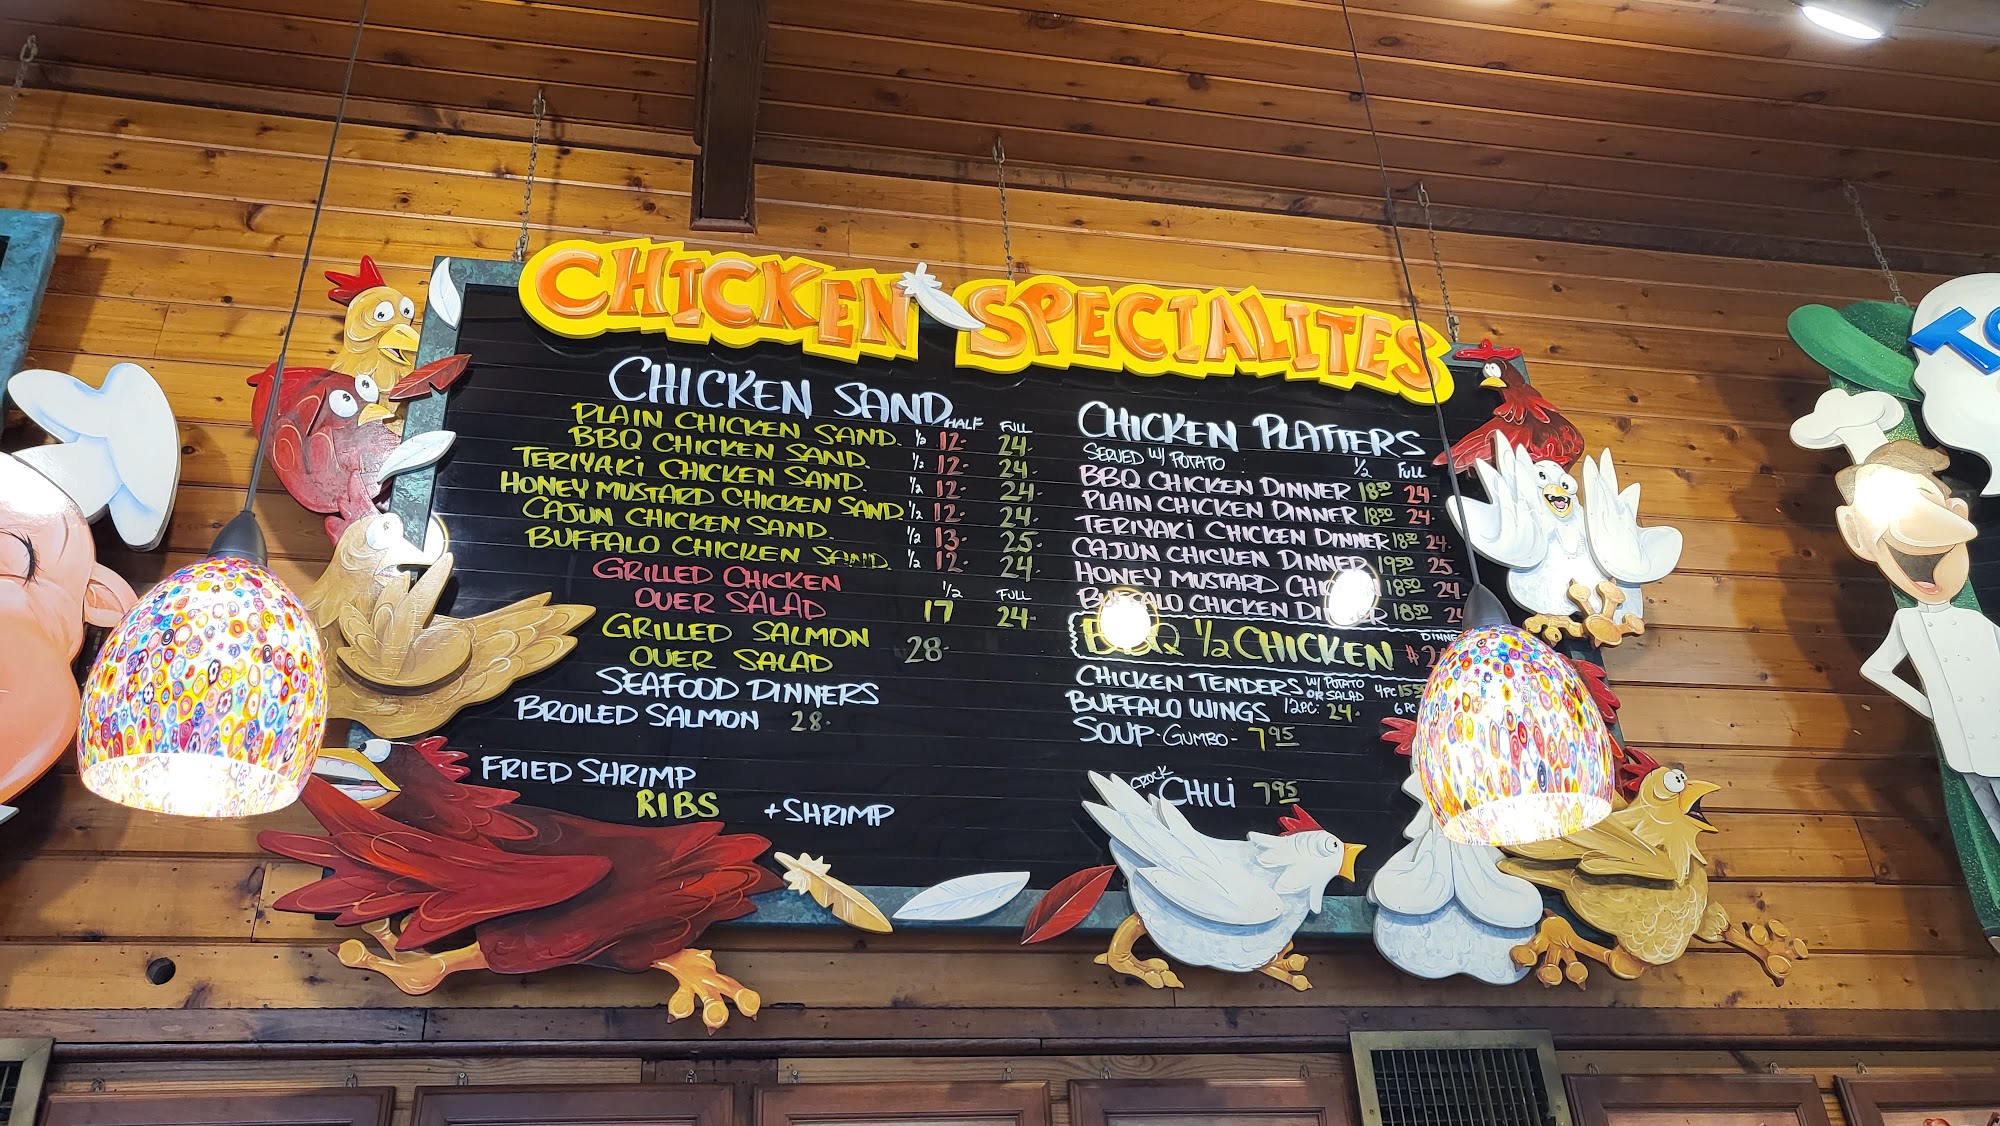 CHICKEN SPECIALITES
CHICKEN SAND
HALF FULL
PLAIN CHICKEN SAND. 1/2 12- 24-
BBQ CHICKEN SAND. 1/2 12- 24-
TERIYAKI CHICKEN SAND. 1/2 12- 24-
HONEY MUSTARD CHICKEN SAND. 1/2 12- 24-
CAJUN CHICKEN SAND. 1/2 13- 25-
BUFFALO CHICKEN SAND. 1/2 12- 24-
GRILLED CHICKEN 1/2 FULL
OVER SALAD 17 24-
GRILLED SALMON
OVER SALAD 28-
SEAFOOD DINNERS
BROILED SALMON 28-
FRIED SHRIMP
RIBS + SHRIMP
CHICKEN PLATTERS
SERVED W/ POTATO 1/2 FULL
BBQ CHICKEN DINNER 1850 24-
PLAIN CHICKEN DINNER 1850 24-
TERIYAKI CHICKEN DINNER 1850 24-
CAJUN CHICKEN DINNER 1950 25
HONEY MUSTARD 1850 24-
CHICKEN 1850
BBQ 1/2 CHICKEN
CHICKEN TENDERS W/ POTATO OR SALAD 4PC
BUFFALO WINGS 12PC. 24- 6 PC
SOUP - GUMBO - 795
CROCK CHILI 795